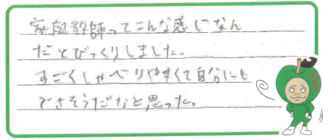 家庭教師ってこんな感じなん
だとびっくりしました。
すごくしゃべりやすくて自分にも
できそうだなと思った。